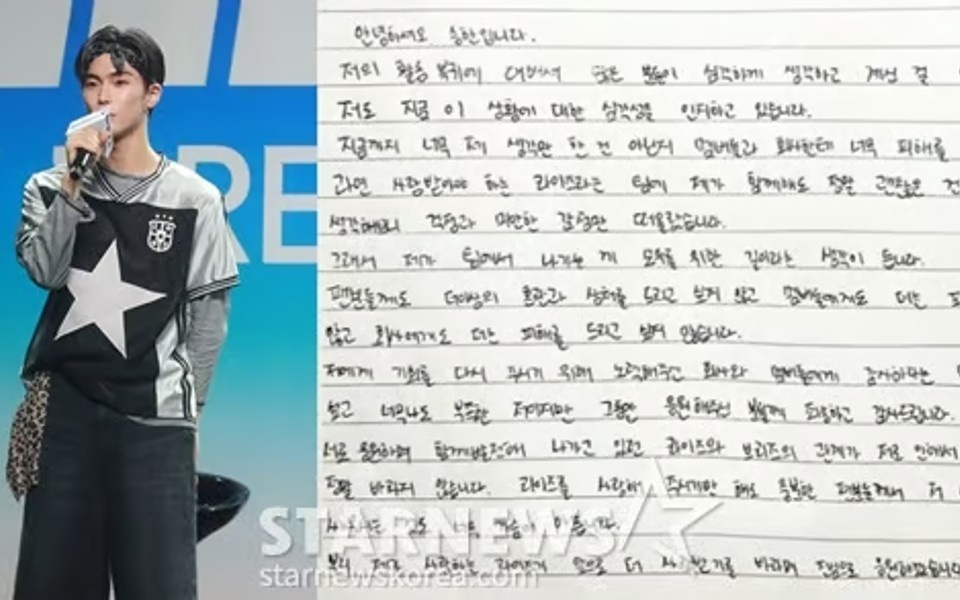 RE
안녕하세요 승한입니다.
저의 활동 복귀에 대해서 많은 분들이 심각하게 생각하고 계신 걸
저도 지금 이 상황에 대한 심각성을 인지하고 있습니다.
지금까지 너무 제 생각만 한 건 아닌지 멤버들과 회사한테 너무 피해를
과연 사랑받아야 하는 라이즈라는 팀에 제가 함께해도 정말 괜찮은 건
생각해보니 걱정과 미안한 감정만 떠올랐습니다.
그래서 제가 팀에서 나가는 게 모두를 위한 길이라는 생각이 듭니다.
팬분들께도 더이상의 혼란과 상처를 드리고 싶지 않고 멤버들에게도 더는
않고 회사에게도 더는 피해를 드리고 싶지 않습니다.
저에게 기회를 다시 주시기 위해 노력해주신 회사와 멤버들에게 감사하다는
싶고 너무나도 부족한 저이지만 그동안 응원해주신 분들께 죄송하고 감사드립니다.
서로 응원하며 함께 발전해 나가고 있던 라이즈와 브리즈의 관계가 저로 인해서
정말 바라지 않습니다. 라이즈를 사랑해 주시기만 해도 충분한 팬분들께서 저
너무 마음이 아픕니다.
제가 사랑하는 라이즈가 앞으로 더 사랑받기를 바라며 진심으로 응원하겠습니다
STARNEWS
starnewskorea.com